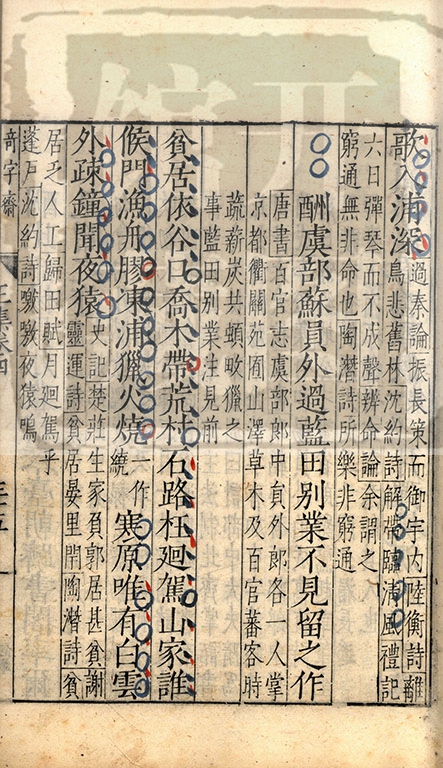 歌入浦深
過秦論振長策而御宇內陸衡詩離
鳥悲舊林沈約詩解帶臨清風禮記
六日彈琴而不成聲辨命論余謂之
窮通無非命也陶潛詩所樂非窮通
酬虞部蘇員外過藍田別業不見留之作
唐書百官志虞部郎中員外郎各一人掌
京都衢關苑囿山澤草木及百官蕃客時
蔬薪炭共頓畋獵之
事藍田別業注見前
貧居依谷口喬木帶荒村石路枉廻駕山家誰
候門漁舟膠凍浦獵火燒一作繞寒原唯有白雲
外疎鐘聞夜猿
史記楚莊生家負郭居甚貧謝
靈運詩貧居晏里閈陶潛詩貧
居乏人工歸田賦月廻駕乎
蓬戶沈約詩噭噭夜猿鳴
奇字齋
卷四